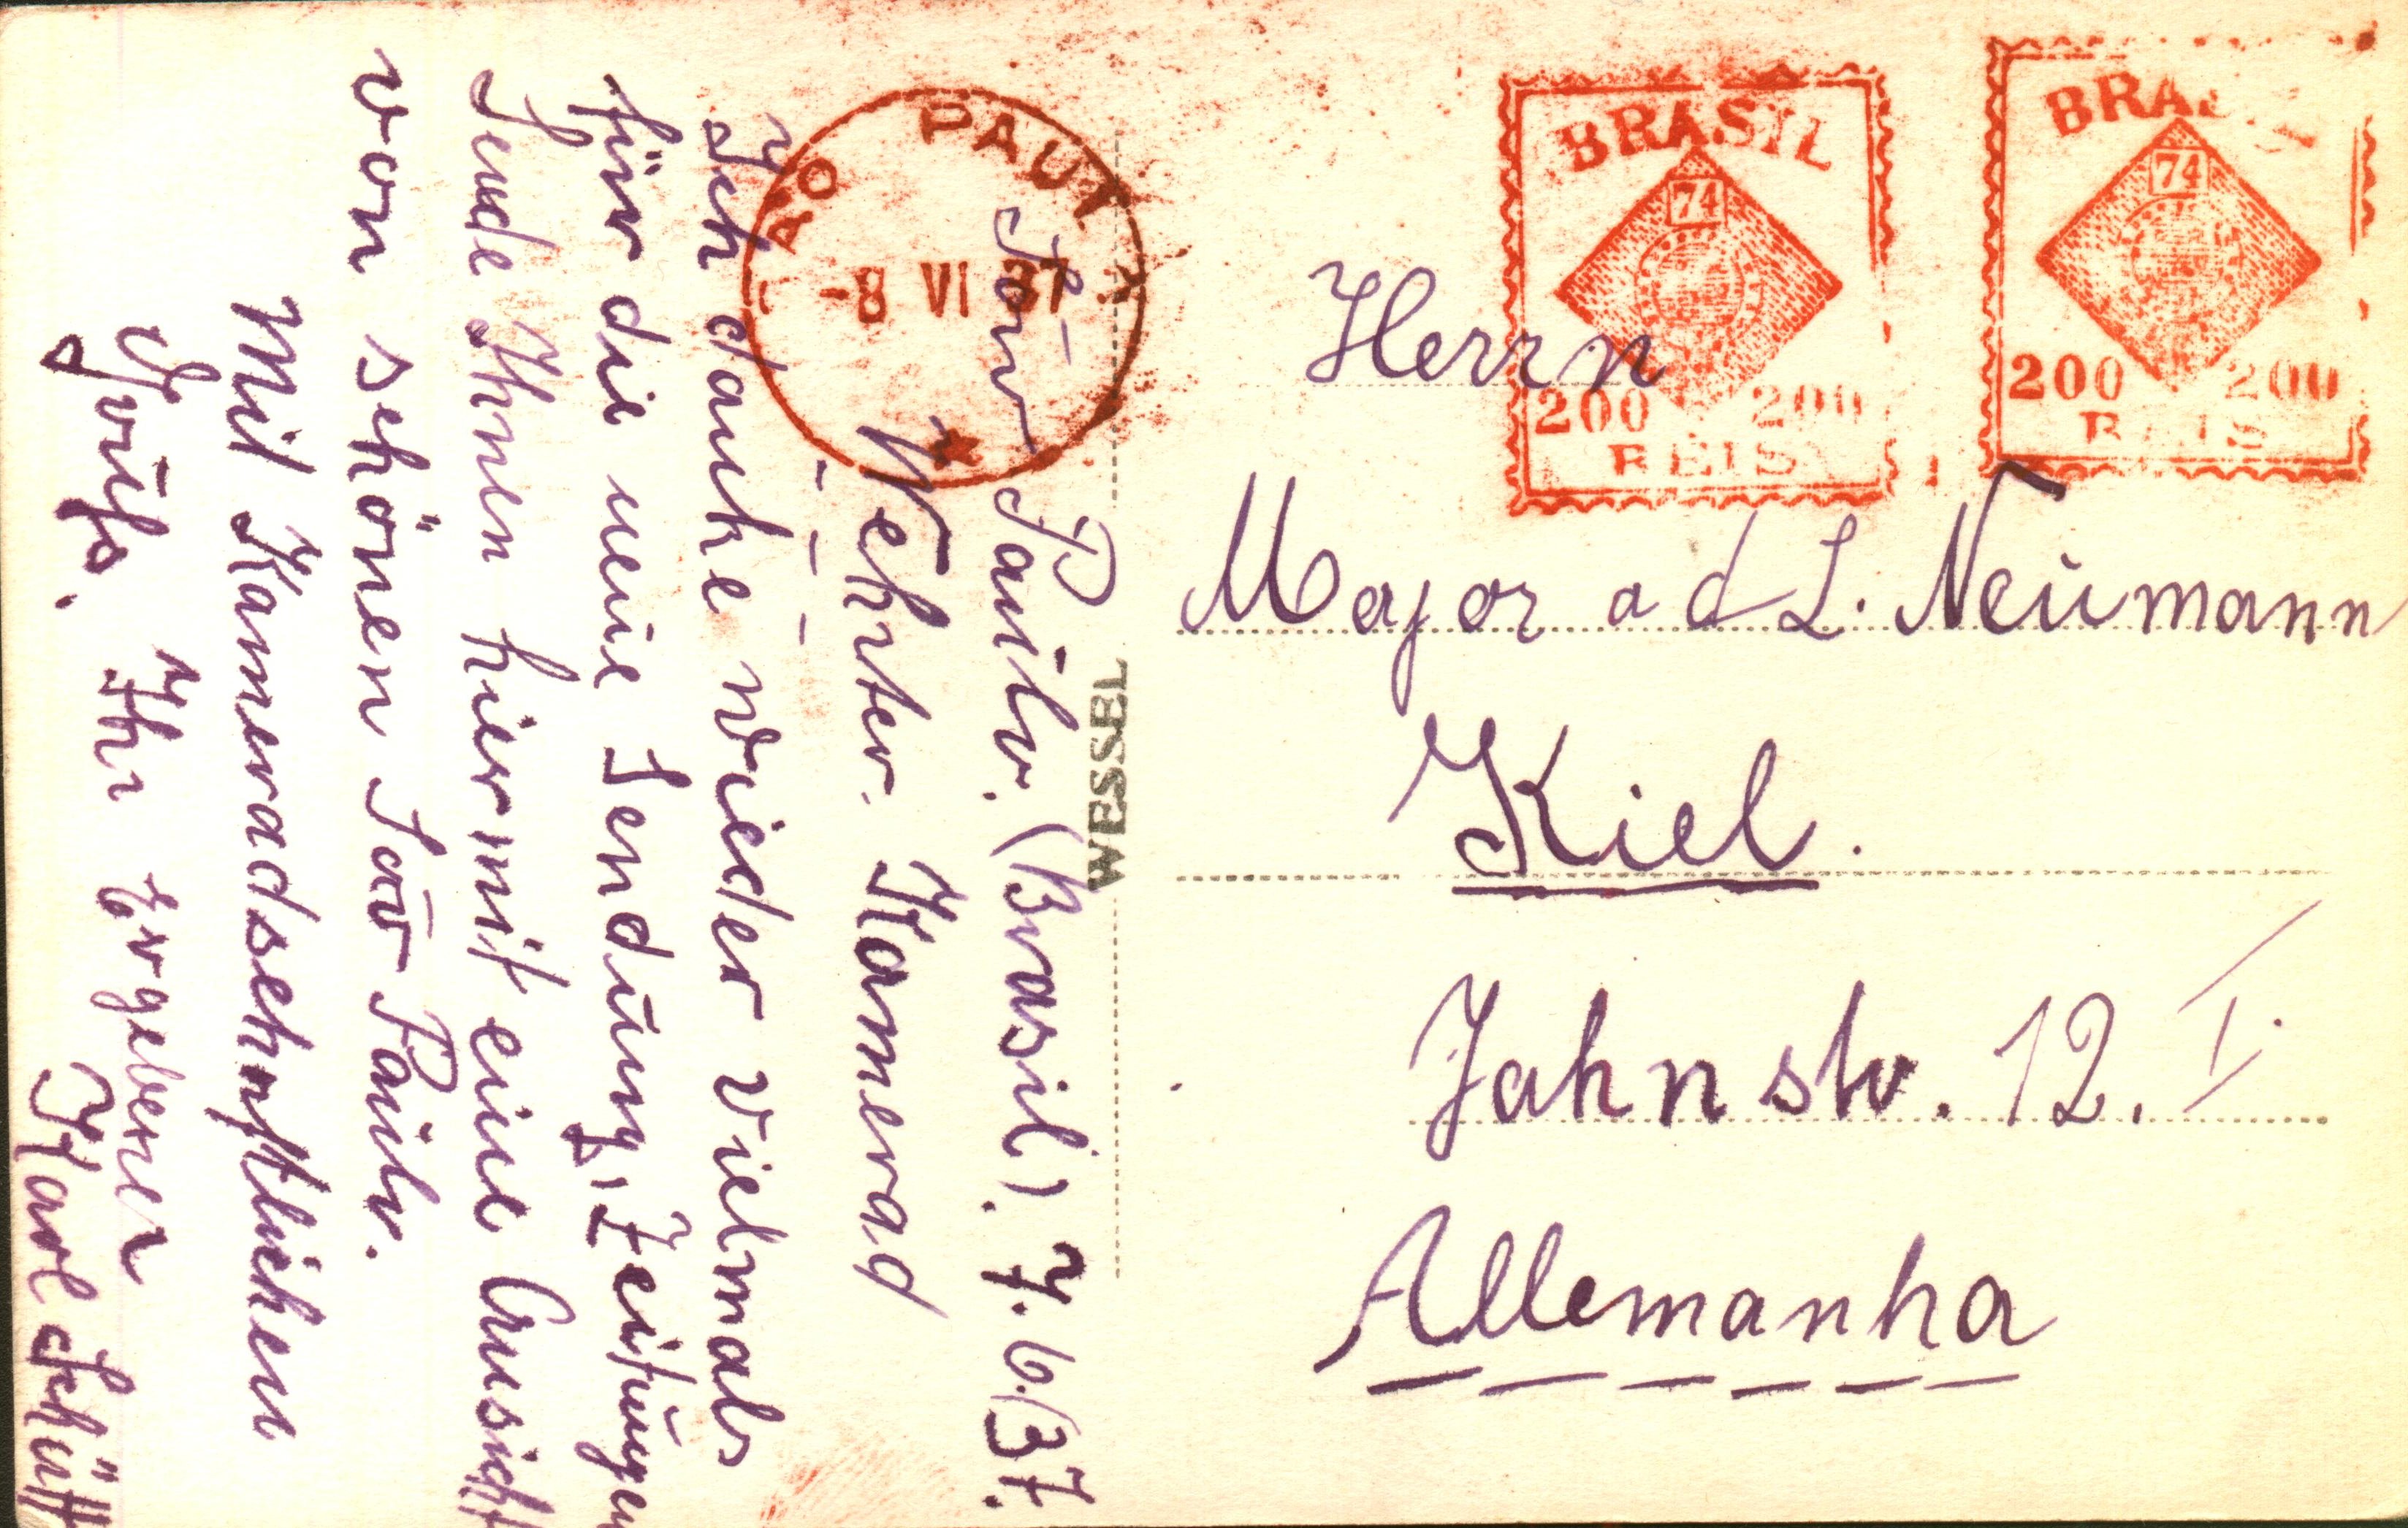 São Paulo. (Brasil). 7.6.37.
Wehrter. Kamerad
Ich danke wieder vielmals
für die neue Sendung, Zeitungen
Sende Ihnen hiermit eine Aussicht
von schönen São Paulo.
Mit Kameradschaftlichen
Gruß. Ihr Ergebener
Karl Schütt
SAO PAULO
-8 VI 37
WESSEL
BRASIL
74
200 200
REIS
BRAS
74
200 200
REIS
Herrn
Major a d L. Neumann
Kiel.
Jahnstr. 12. I.
Allemanha